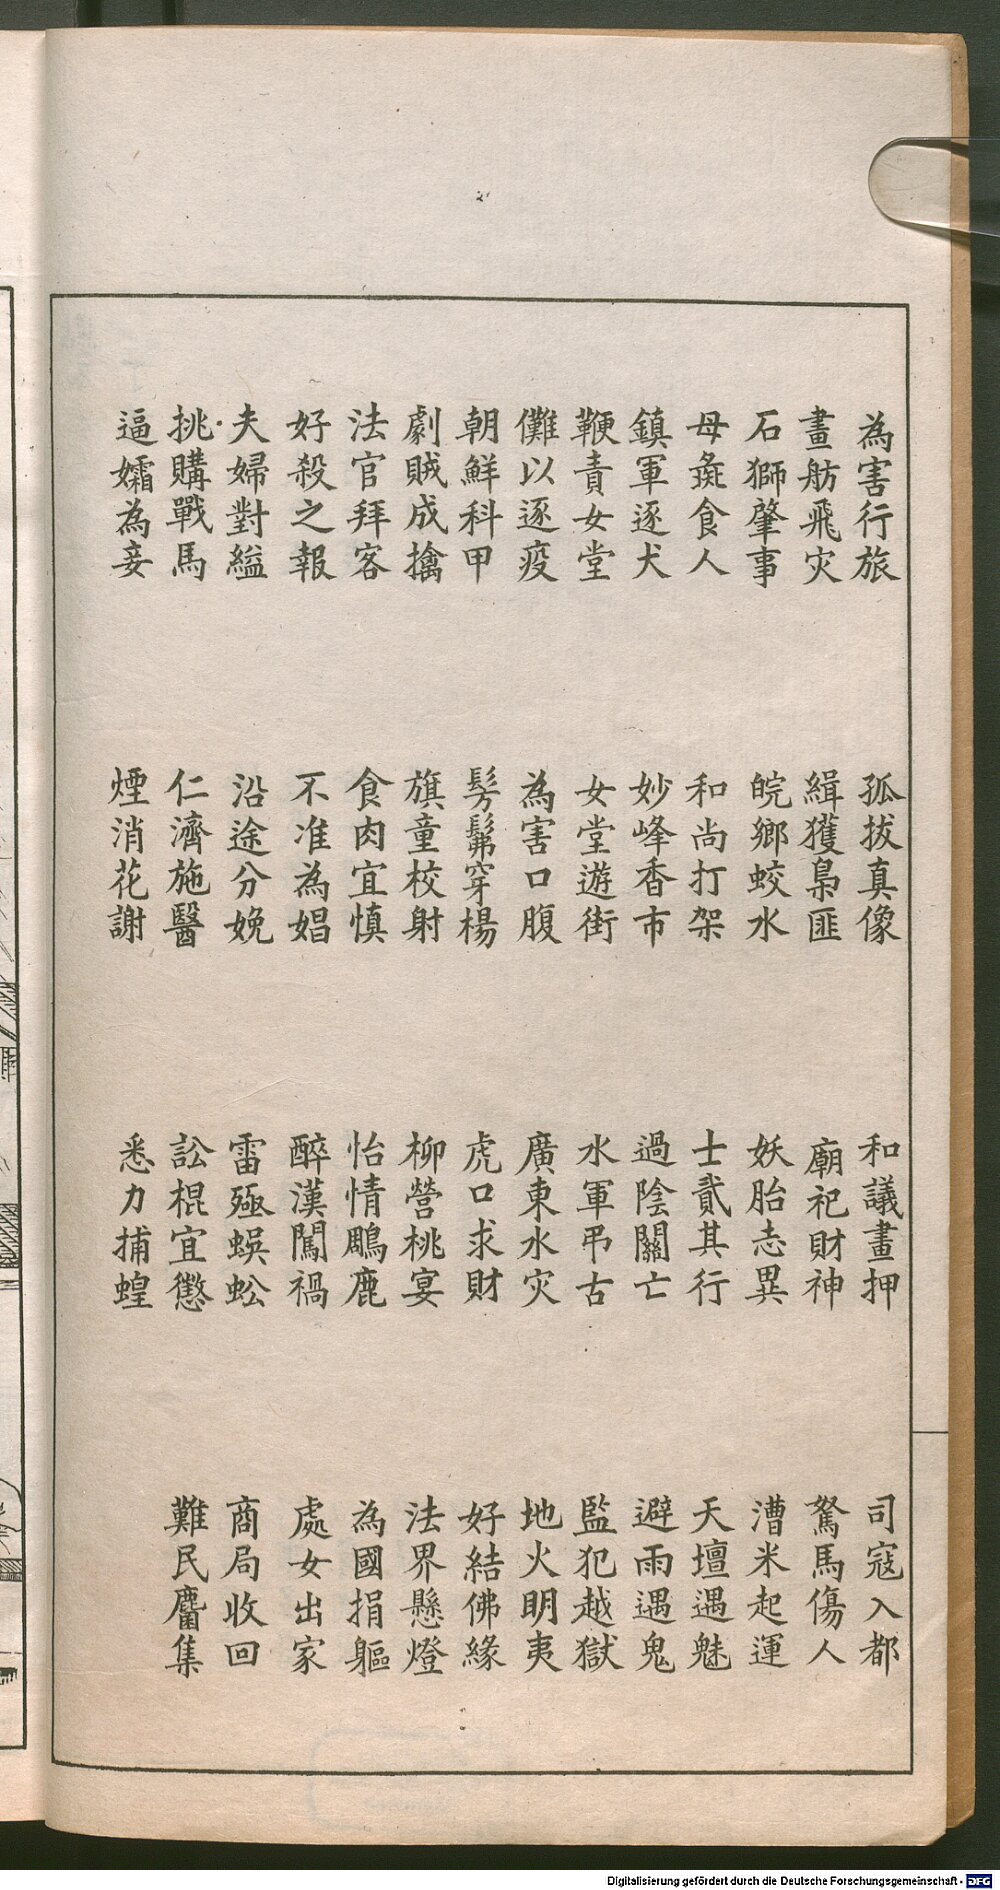 為害行旅 孤拔真像 和議畫押 司寇入都
畫舫飛灾 緝獲梟匪 廟祀財神 駑馬傷人
石獅肇事 皖鄉蛟水 妖胎志異 漕米起運
母彘食人 和尚打架 士貳其行 天壇遇魅
鎮軍逐犬 妙峰香市 過陰關亡 避雨遇鬼
鞭責女堂 女堂遊街 水軍弔古 監犯越獄
儺以逐疫 為害口腹 廣東水灾 地火明夷
朝鮮科甲 髣髴穿楊 虎口求財 好結佛緣
劇賊成擒 旗童校射 柳營桃宴 法界懸燈
法官拜客 食肉宜慎 怡情鵰鹿 為國捐軀
好殺之報 不准為娼 醉漢闖禍 處女出家
夫婦對縊 沿途分娩 雷殛蜈蚣 商局收回
挑購戰馬 仁濟施醫 訟棍宜懲 難民麕集
逼孀為妾 煙消花謝 悉力捕蝗
Digitalisierung gefördert durch die Deutsche Forschungsgemeinschaft - DFG